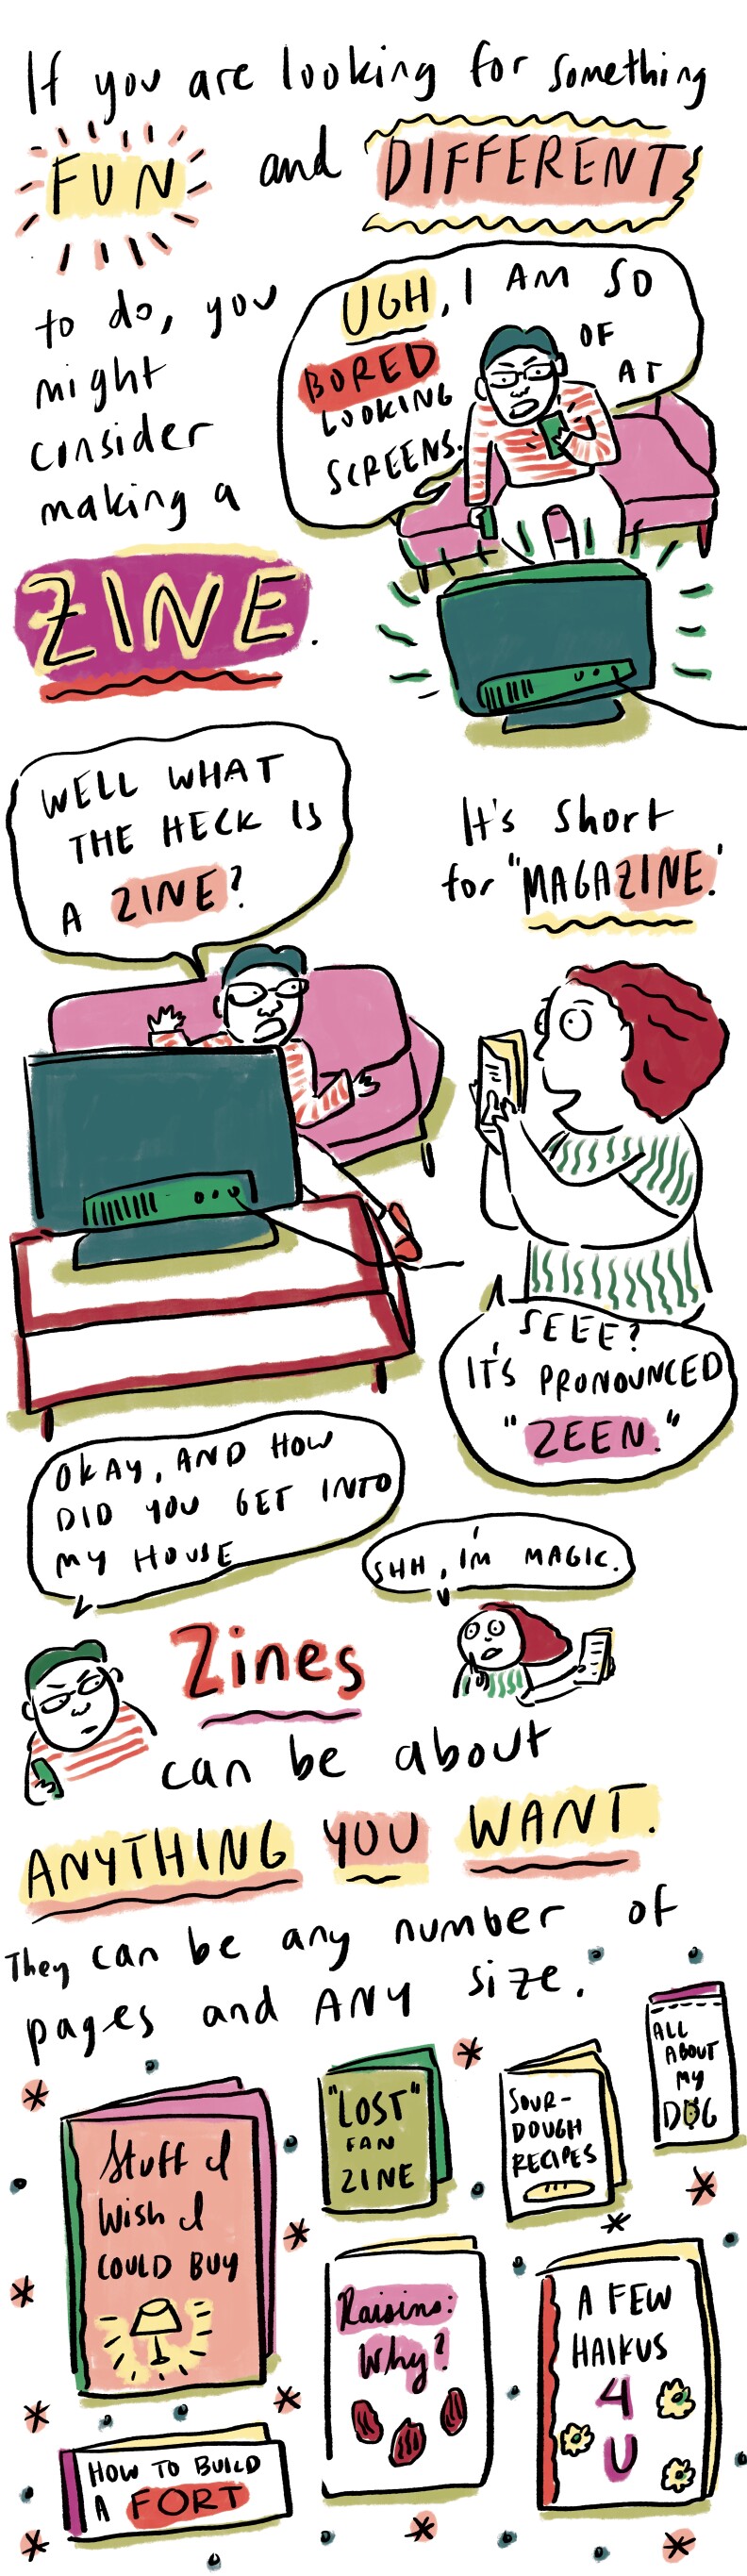 If you are looking for something
FUN and DIFFERENT
to do, you
might
consider
making a
ZINE.
UGH, I AM SO
BORED OF
LOOKING AT
SCREENS.
WELL WHAT
THE HECK IS
A ZINE?
It's short
for "MAGAZINE."
SEEE?
IT'S PRONOUNCED
"ZEEN."
OKAY, AND HOW
DID YOU GET INTO
MY HOUSE
SHH, I'M MAGIC.
Zines
can be about
ANYTHING YOU WANT.
They can be any number of
pages and ANY size.
Stuff I
Wish I
COULD BUY
"LOST"
FAN
ZINE
SOUR-
DOUGH
RECIPES
ALL
ABOUT
MY
DOG
Raisins:
Why?
A FEW
HAIKUS
4
U
HOW TO BUILD
A FORT